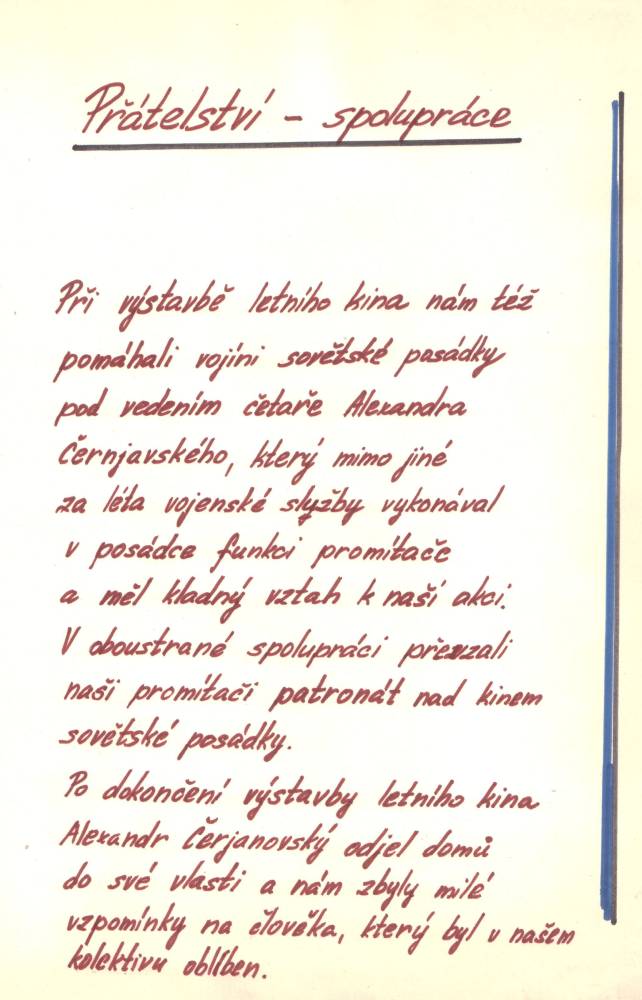 Přátelství - spolupráce
Při výstavbě letního kina nám též
pomáhali vojíni sovětské posádky
pod vedením četaře Alexandra
Černjavského, který mimo jiné
za léta vojenské služby vykonával
v posádce funkci promítače
a měl kladný vztah k naší akci.
V oboustrané spolupráci převzali
naši promítači patronát nad kinem
sovětské posádky.
Po dokončení výstavby letního kina
Alexandr Čerjanovský odjel domů
do své vlasti a nám zbyly milé
vzpomínky na člověka, který byl v našem
kolektivu oblíben.